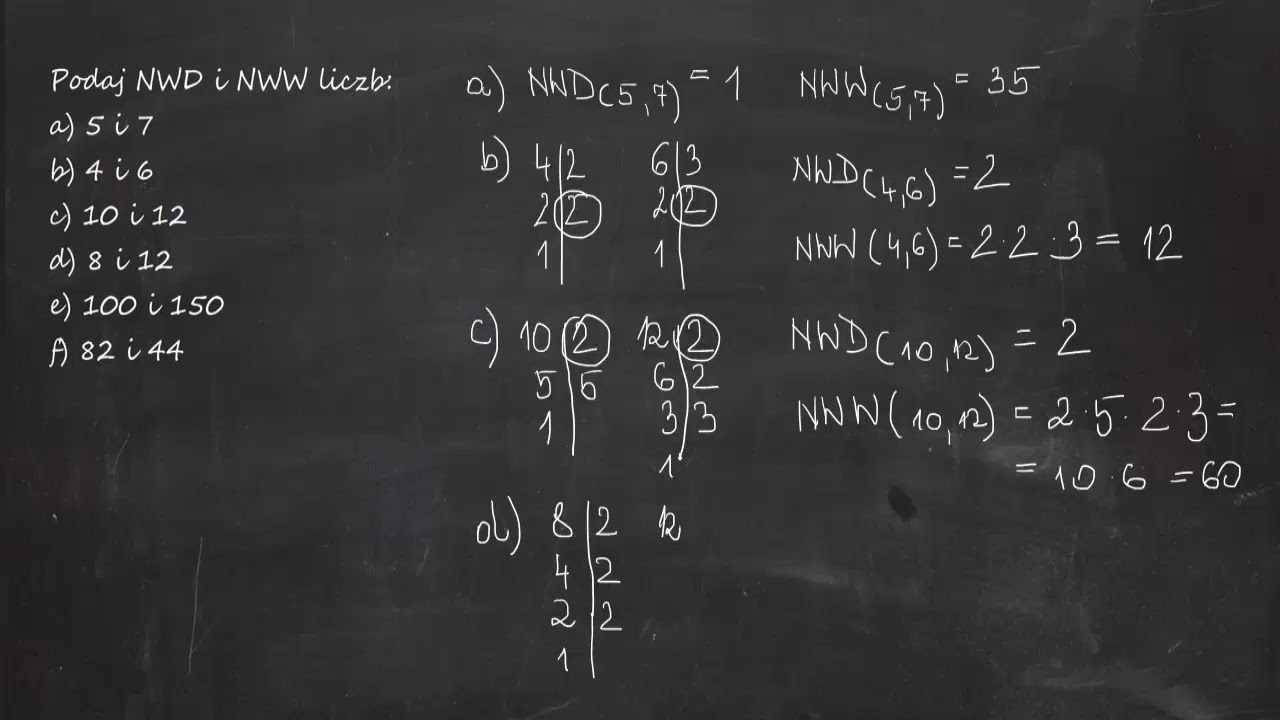 Podaj NWD i NWW liczb:
a) 5 i 7
b) 4 i 6
c) 10 i 12
d) 8 i 12
e) 100 i 150
f) 82 i 44
a) NWD(5,7) = 1 NWW(5,7) = 35
b) 4|2 6|3 NWD(4,6) = 2
2|2 2|2
1| 1| NWW(4,6) = 2·2·3 = 12
c) 10|2 12|2 NWD(10,12) = 2
5|5 6|2
1| 3|3 NWW(10,12) = 2·5·2·3 =
1 = 10·6 = 60
d) 8|2 12
4|2
2|2
1|